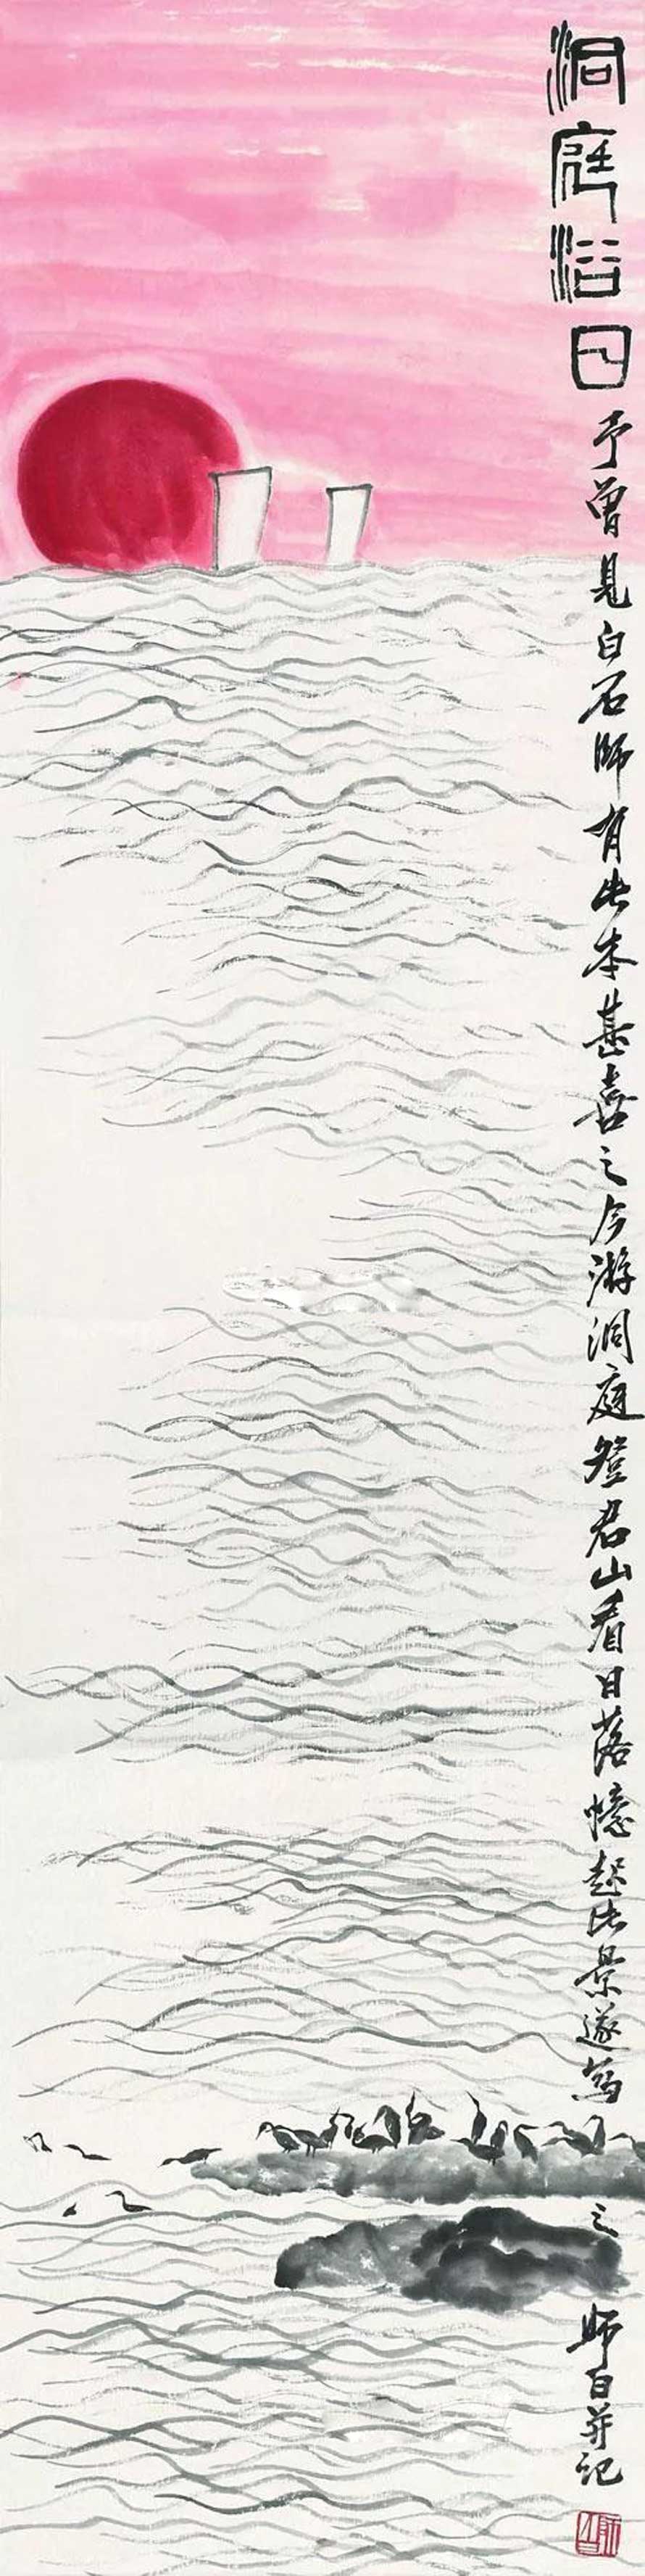 洞庭浴日予曾見白石師有此本甚喜之今游洞庭登君山看日落憶起此景遂寫之師白并記